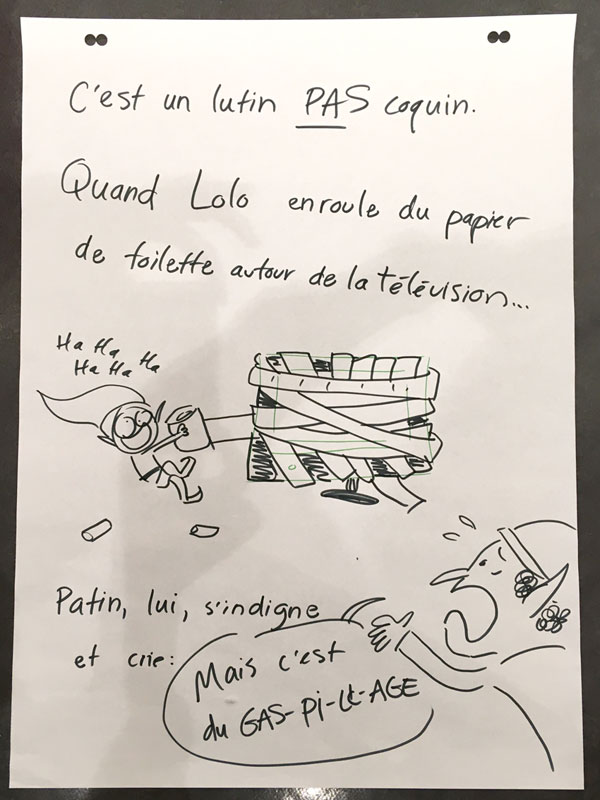 C'est un lutin PAS coquin.
Quand Lolo enroule du papier
de toilette autour de la télévision...
Ha Ha Ha
Ha Ha
Patin, lui, s'indigne
et crie:
Mais c'est
du GAS-Pi-LL-AGE